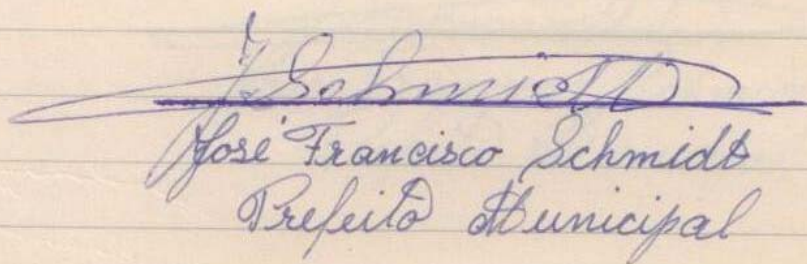 J. Schmidt
José Francisco Schmidt
Prefeito Municipal